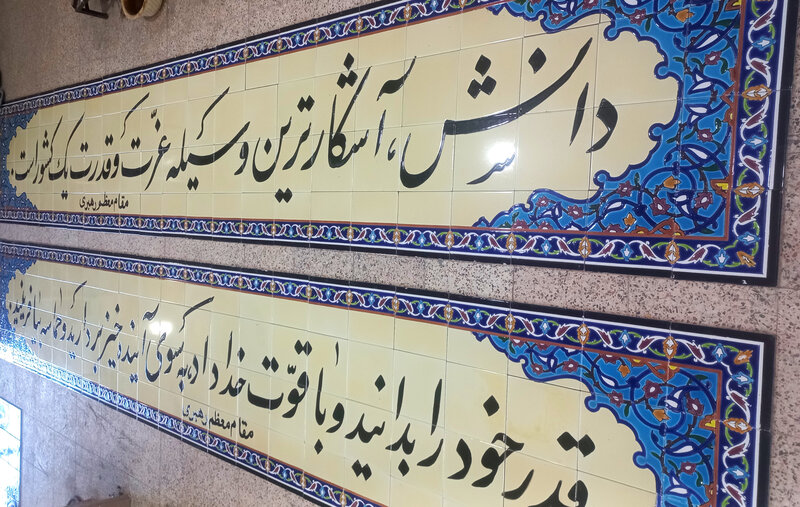 دانش، آشکارترین وسیله عزّت و قدرت یک کشور است.
مقام معظم رهبری
قدر خود را بدانید و با قوّت خداداد، به سوی آینده خیز بردارید و حماسه بیافرینید.
مقام معظم رهبری